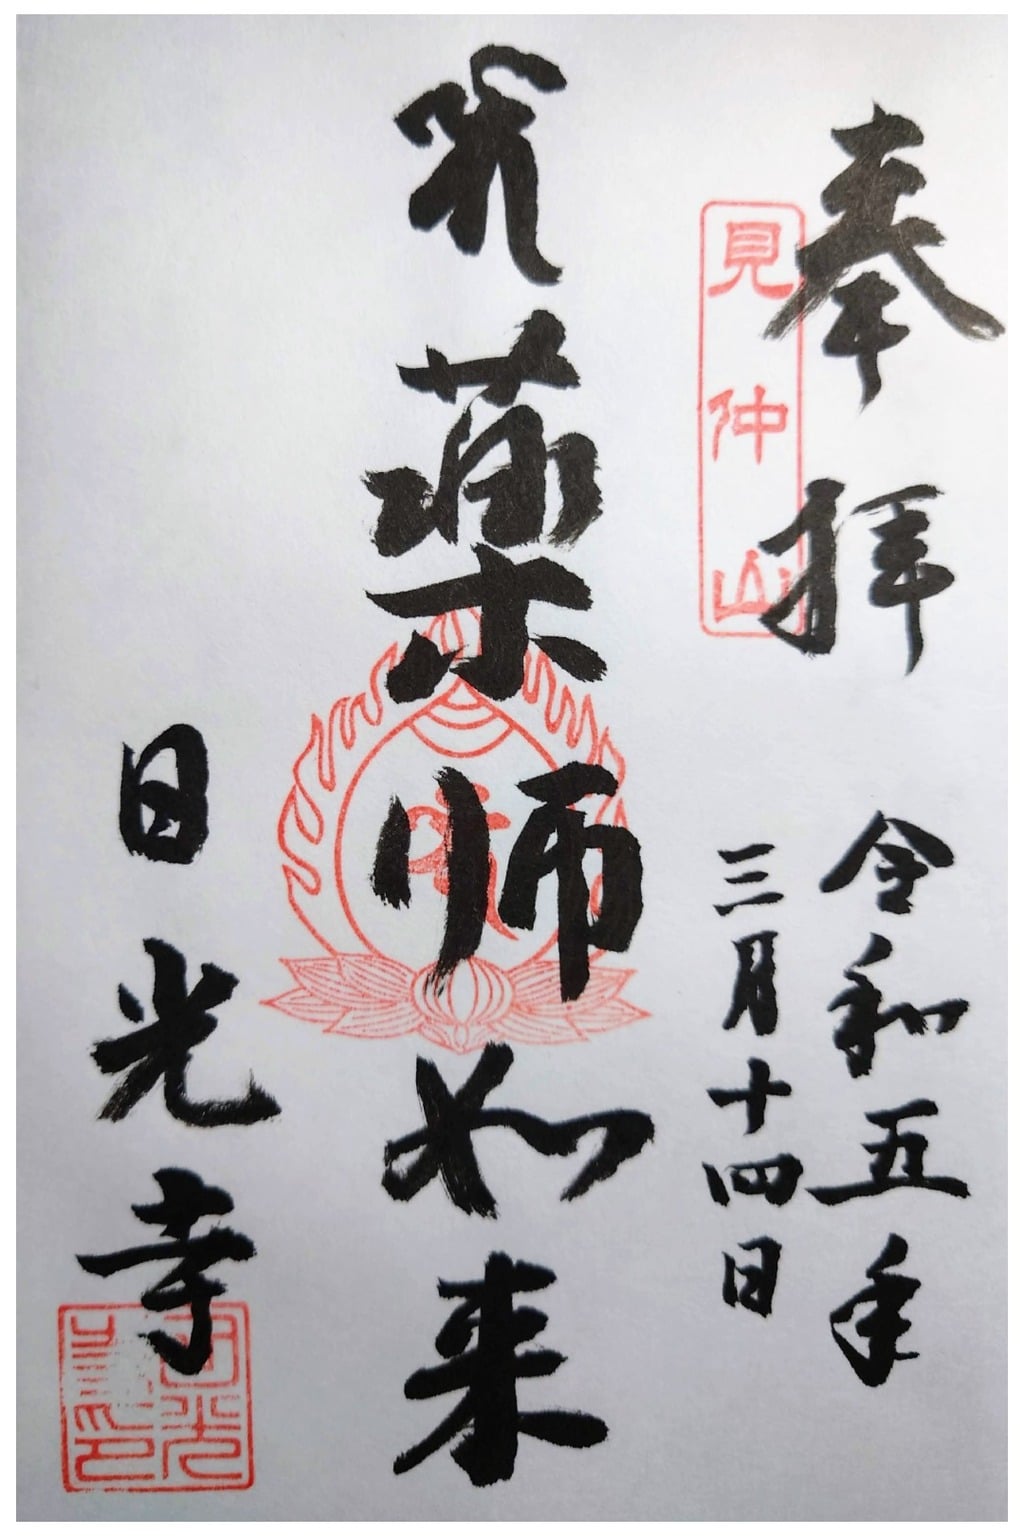 奉拝
令和五年
三月十四日
見仲山
薬師如来
日光寺